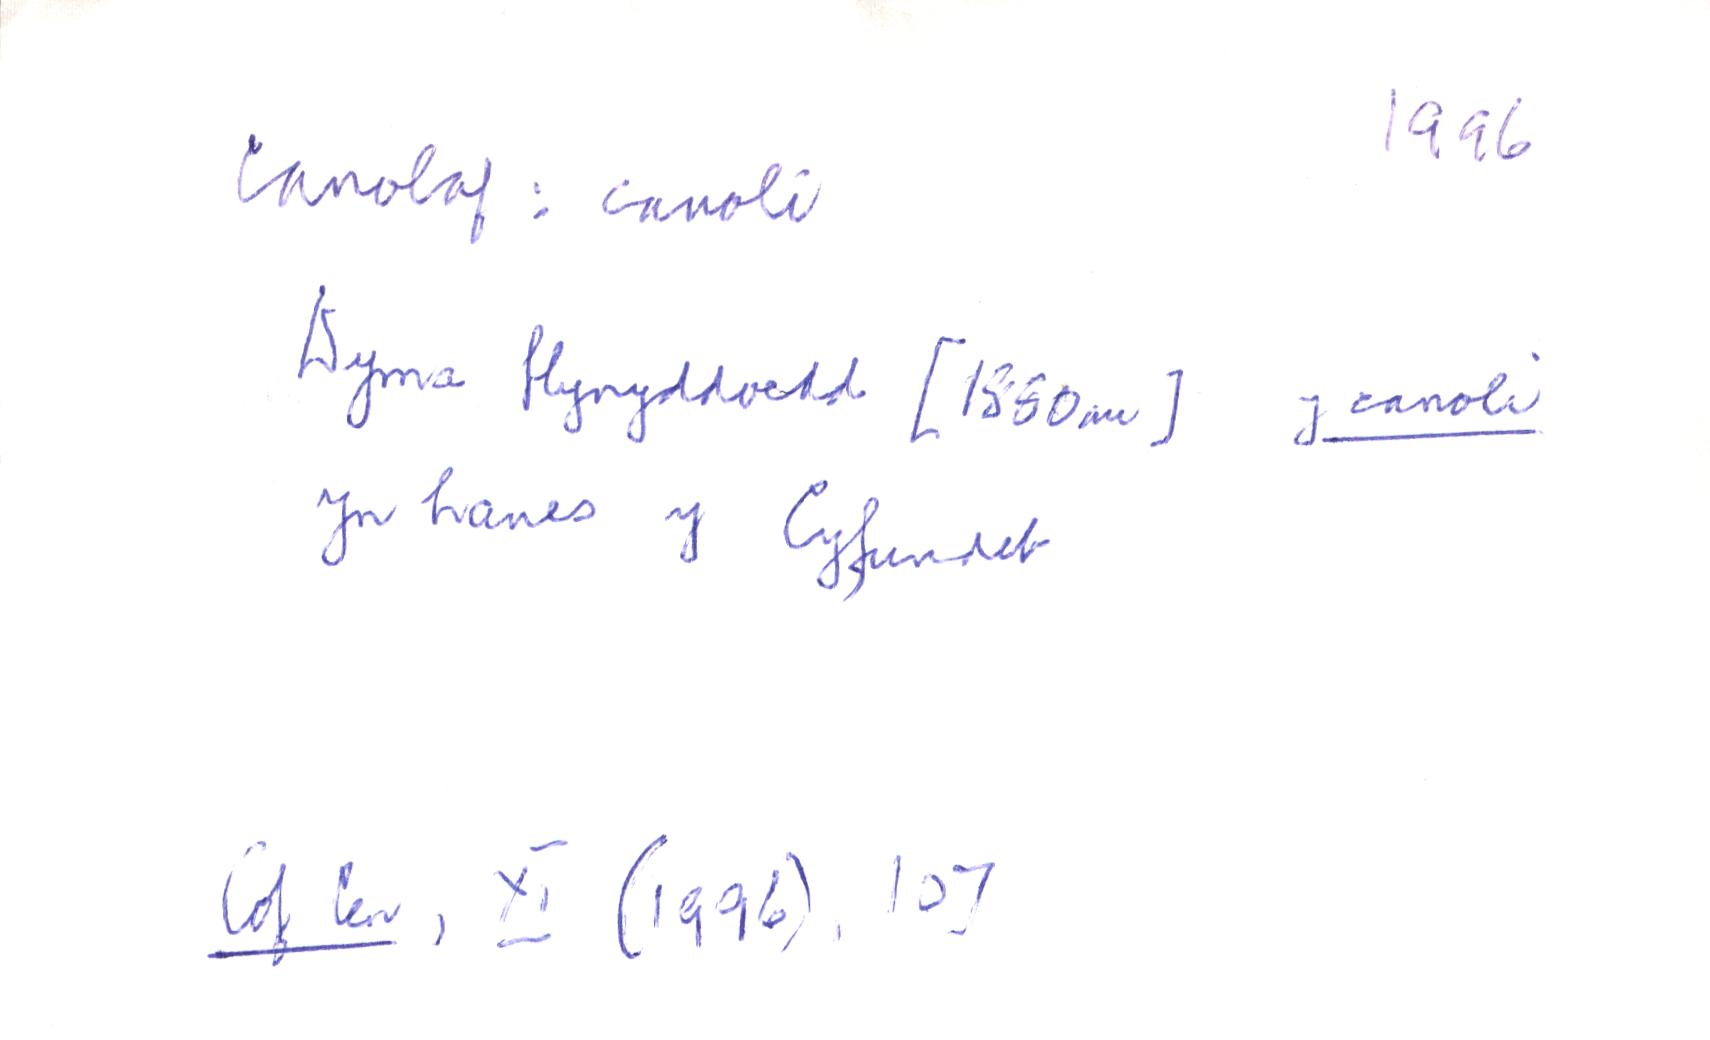 1996
Canolaf: canoli
Dyma flynyddoedd [1880au] y canoli
yn hanes y Cyfundeb
Cof Cen, XI (1996), 107